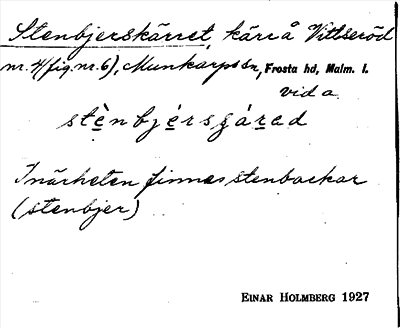 Stenbjerskärret, kärr å Vittseröd
nr. 4 (fig. nr. 6), Munkarps sn, Frosta hd, Malm. l.
vid a.
stènbjérsgárad
I närheten finnes stenbackar
(stenbjer)
EINAR HOLMBERG 1927